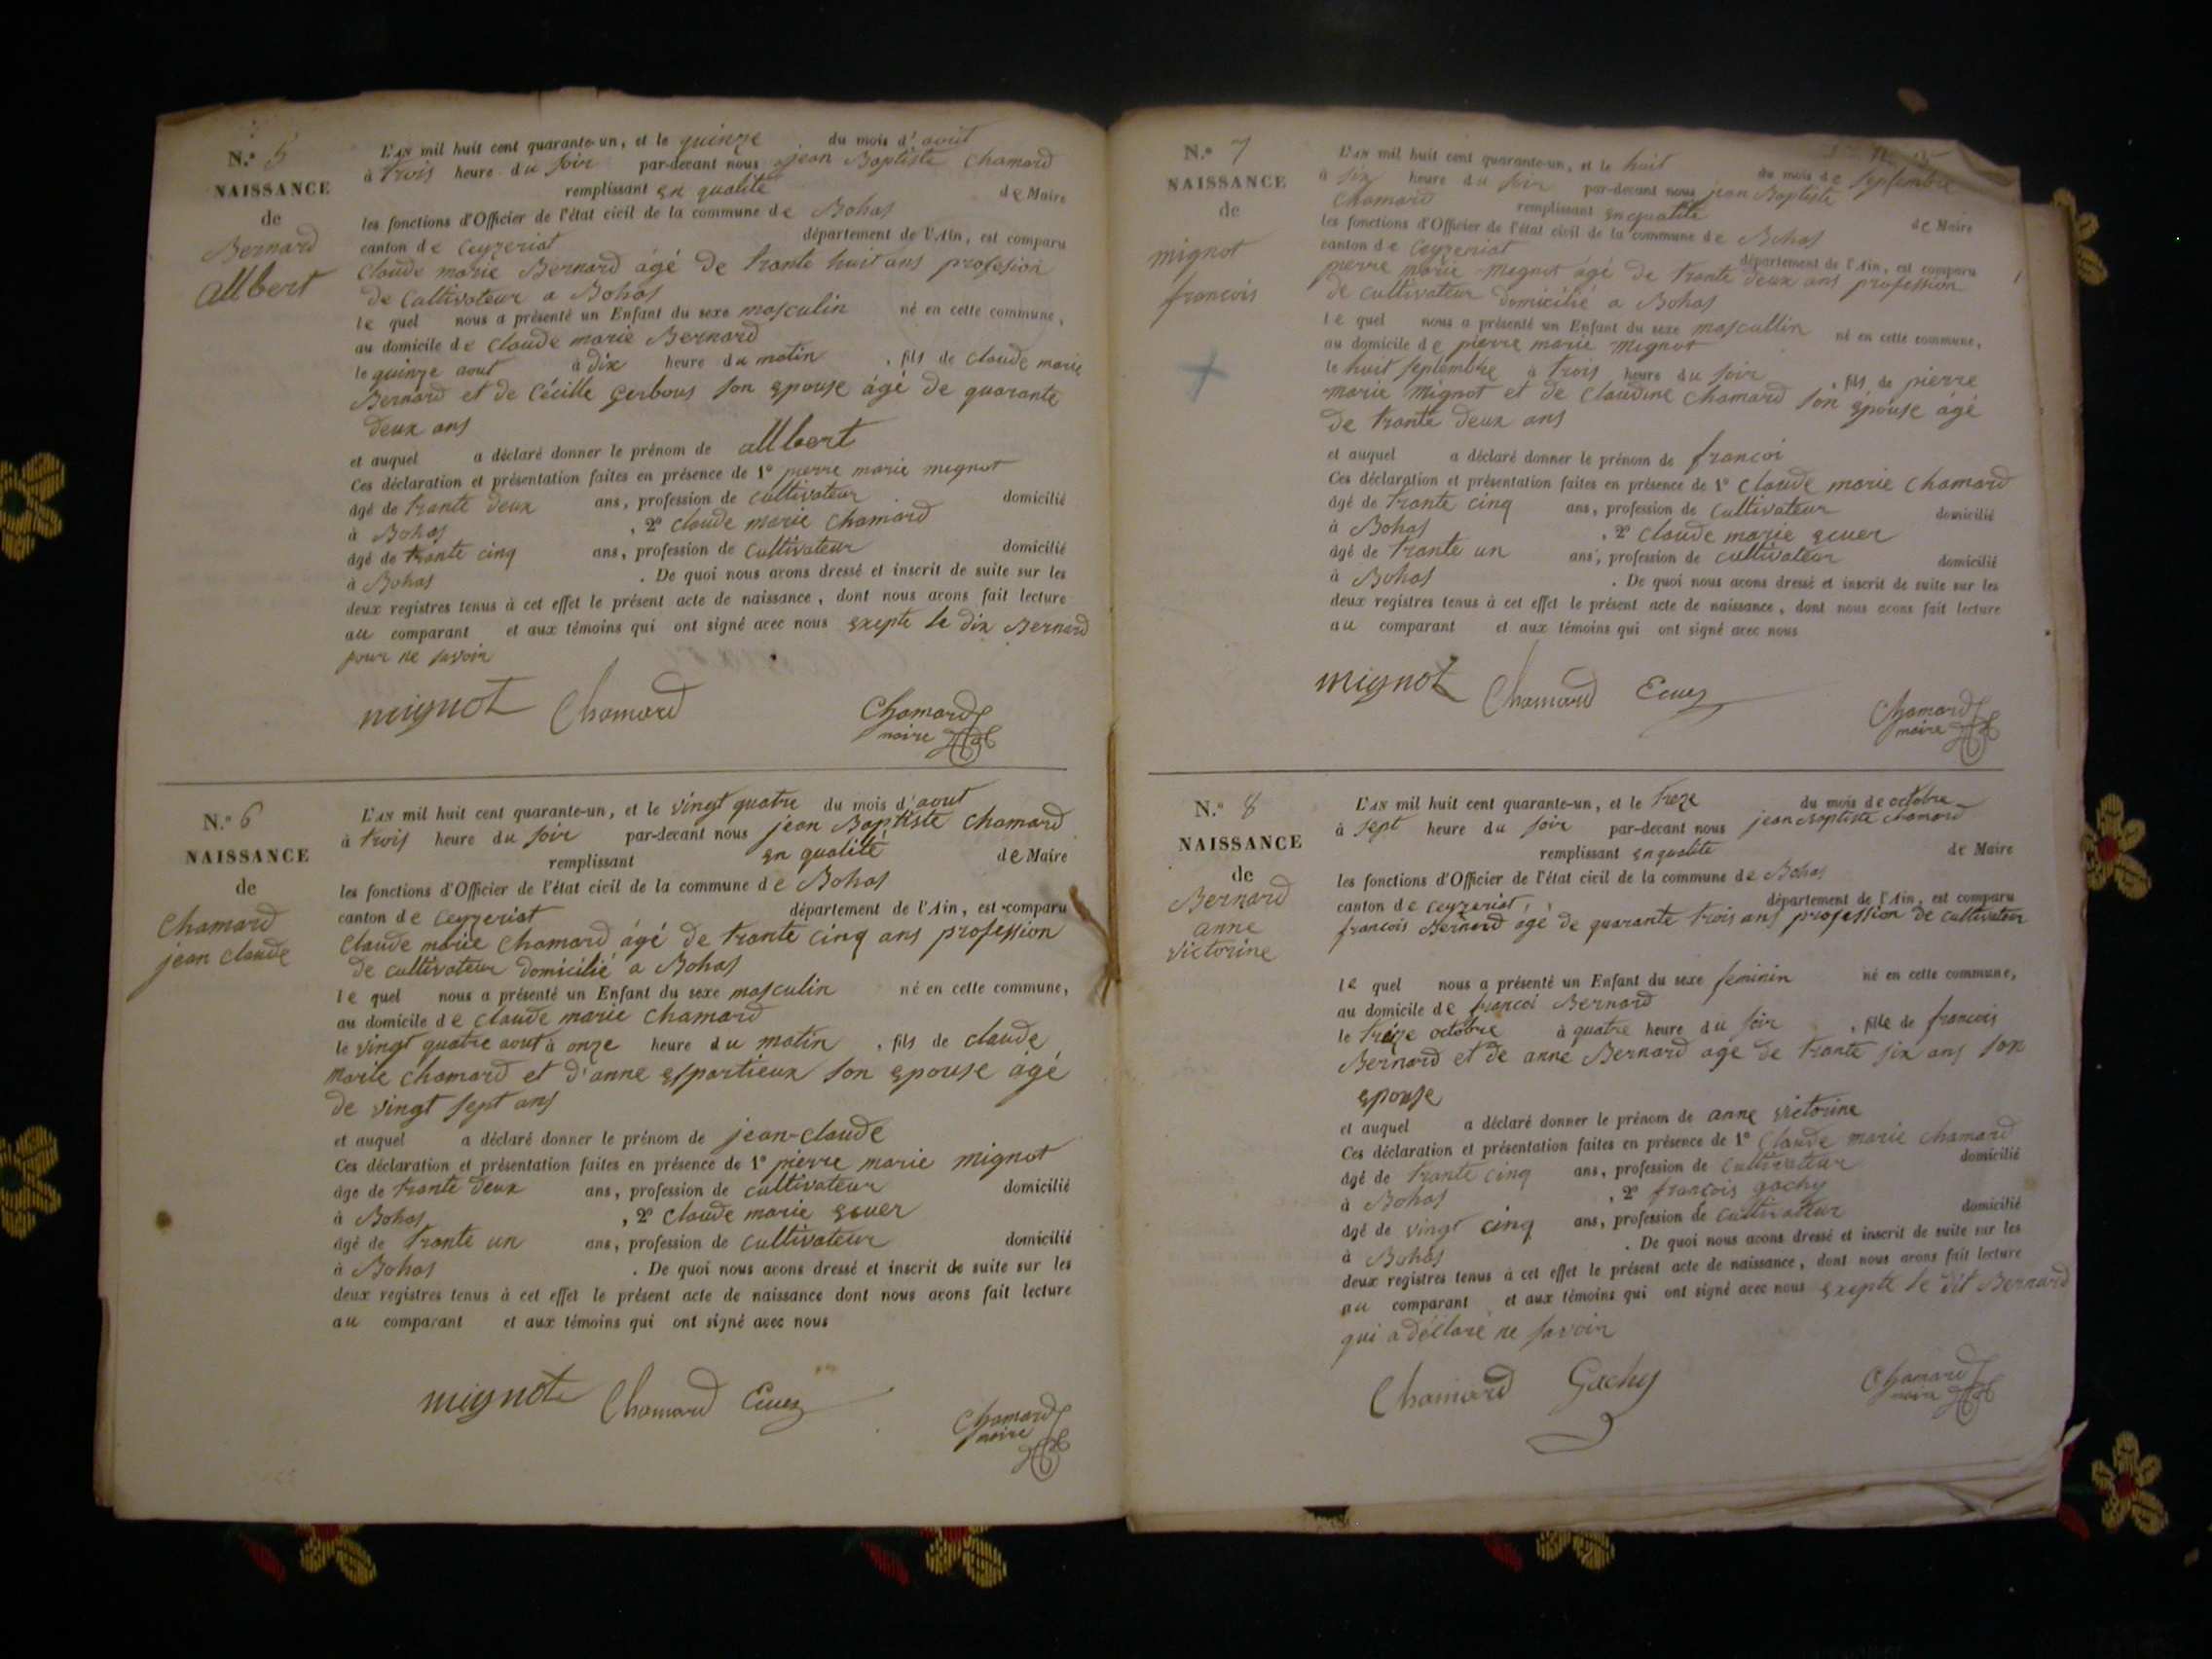 N.º 5
NAISSANCE
de
Bernard
allbert
L'AN mil huit cent quarante-un, et le quinze du mois d'août
à trois heure du soir par-devant nous jean Baptiste Chamard
remplissant en qualité de Maire
les fonctions d'Officier de l'état civil de la commune de Bohas
canton de Ceyzeriat département de l'Ain, est comparu
Claude marie Bernard âgé de trante huit ans profesion
de Cultivateur a Bohas
le quel nous a présenté un Enfant du sexe masculin né en cette commune,
au domicile de Claude marie Bernard
le quinze aout à dix heure du matin , fils de claude marie
Bernard et de Cécille Gerbous son epouse âgé de quarante
deux ans
et auquel a déclaré donner le prénom de allbert
Ces déclaration et présentation faites en présence de 1º pierre marie mignot
âgé de trante deux ans, profession de cultivateur domicilié
à Bohas , 2º claude marie Chamard
âgé de trante cinq ans, profession de cultivateur domicilié
à Bohas . De quoi nous avons dressé et inscrit de suite sur les
deux registres tenus à cet effet le présent acte de naissance, dont nous avons fait lecture
au comparant et aux témoins qui ont signé avec nous exepte le dix Bernard
pour ne savoir
mignot Chamard Chamard
maire
N.º 6
NAISSANCE
de
Chamard
jean claude
L'AN mil huit cent quarante-un, et le vingt quatre du mois d'aout
à trois heure du soir par-devant nous jean Baptiste Chamard
remplissant en qualité de Maire
les fonctions d'Officier de l'état civil de la commune de Bohas
canton de Ceyzeriat département de l'Ain, est comparu
Claude marie Chamard âgé de trante cinq ans profession
de cultivateur domicilié a Bohas
le quel nous a présenté un Enfant du sexe masculin né en cette commune,
au domicile de Claude marie Chamard
le vingt quatre aout à onze heure du matin , fils de claude
marie Chamard et d'anne espartieux son epouse âgé
de vingt sept ans
et auquel a déclaré donner le prénom de jean-claude
Ces déclaration et présentation faites en présence de 1º pierre marie mignot
âgé de trante deux ans, profession de cultivateur domicilié
à Bohas , 2º Claude marie ecuer
âgé de trante un ans, profession de cultivateur domicilié
à Bohas . De quoi nous avons dressé et inscrit de suite sur les
deux registres tenus à cet effet le présent acte de naissance dont nous avons fait lecture
au comparant et aux témoins qui ont signé avec nous
mignot Chamard Ecuer Chamard
maire
N.º 7
NAISSANCE
de
mignot
francois
L'AN mil huit cent quarante-un, et le huit du mois de Septembre
à six heure du soir par-devant nous jean Baptiste
Chamard remplissant en qualité de Maire
les fonctions d'Officier de l'état civil de la commune de Bohas
canton de Ceyzeriat département de l'Ain, est comparu
pierre marie mignot âgé de trante deux ans profession
de cultivateur domicilié a Bohas
le quel nous a présenté un Enfant du sexe mascullin né en cette commune,
au domicile de pierre marie mignot
le huit septembre à trois heure du soir , fils de pierre
marie mignot et de Claudine Chamard son épouse âgé
de trante deux ans
et auquel a déclaré donner le prénom de francoi
Ces déclaration et présentation faites en présence de 1º Claude marie Chamard
âgé de trante cinq ans, profession de cultivateur domicilié
à Bohas , 2º Claude marie ecuer
âgé de trante un ans, profession de cultivateur domicilié
à Bohas . De quoi nous avons dressé et inscrit de suite sur les
deux registres tenus à cet effet le présent acte de naissance, dont nous avons fait lecture
au comparant et aux témoins qui ont signé avec nous
mignot Chamard Ecuer Chamard
maire
N.º 8
NAISSANCE
de
Bernard
anne
victorine
L'AN mil huit cent quarante-un, et le treze du mois de octobre
à sept heure du soir par-devant nous jean Baptiste Chamard
remplissant en qualité de Maire
les fonctions d'Officier de l'état civil de la commune de Bohas
canton de Ceyzeriat département de l'Ain, est comparu
francois Bernard âgé de quarante trois ans profession de cultivateur
le quel nous a présenté un Enfant du sexe feminin né en cette commune,
au domicile de francoi Bernard
le treize octobre à quatre heure du soir , fille de francois
Bernard et de anne Bernard age de trante six ans son
epouse
et auquel a déclaré donner le prénom de anne victorine
Ces déclaration et présentation faites en présence de 1º Claude marie Chamard
âgé de trante cinq ans, profession de cultivateur domicilié
à Bohas , 2º françois gachy
âgé de vingt cinq ans, profession de cultivateur domicilié
à Bohas . De quoi nous avons dressé et inscrit de suite sur les
deux registres tenus à cet effet le présent acte de naissance, dont nous avons fait lecture
au comparant et aux témoins qui ont signé avec nous exepte le dit Bernard
qui a déclaré ne savoir
Chamard Gachy Chamard
maire